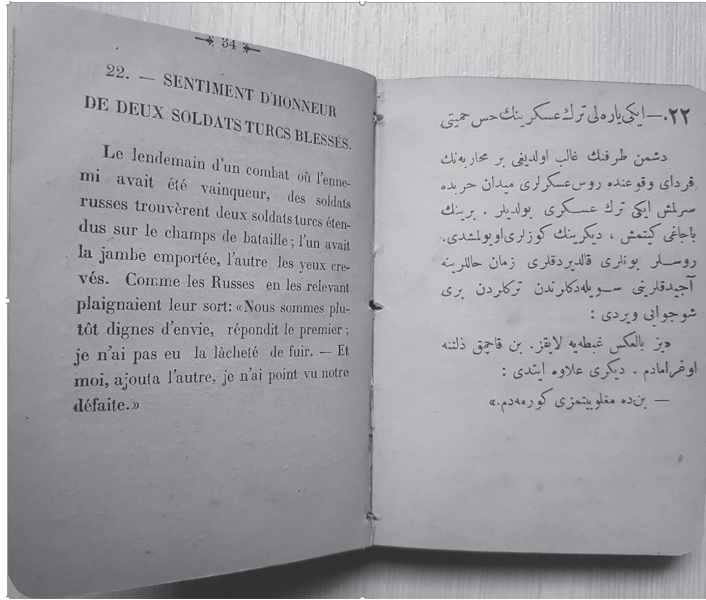 34
22. — SENTIMENT D'HONNEUR
DE DEUX SOLDATS TURCS BLESSÉS.
Le lendemain d'un combat où l'enne-
mi avait été vainqueur, des soldats
russes trouvèrent deux soldats turcs éten-
dus sur le champs de bataille; l'un avait
la jambe emportée, l'autre les yeux cre-
vés. Comme les Russes en les relevant
plaignaient leur sort: «Nous sommes plu-
tôt dignes d'envie, répondit le premier;
je n'ai pas eu la lâcheté de fuir. — Et
moi, ajouta l'autre, je n'ai point vu notre
défaite.»
٢٢.— ایکی یاره‌لی ترك عسکرینك حس حمیتی
دشمن طرفنك غالب اولدیغی بر محاربه‌نك
فردای وقوعنده روس عسکرلری میدان حربده
سرلمش ایکی ترك عسکری بولدیلر . برینك
باجاغی کیتمش ، دیکرینك کوزلری اویولمشدی.
روسلر بونلری قالدیردقلری زمان حاللرینه
آجیدقلرینی سویله‌دکلرندن ترکلردن بری
شو جوابی ویردی :
«بز بالعکس غبطه‌یه لایقز. بن قاچمق ذلتنه
اوغرامادم . دیکری علاوه ایتدی :
— بن‌ده مغلوبیتمزی کورمه‌دم.»